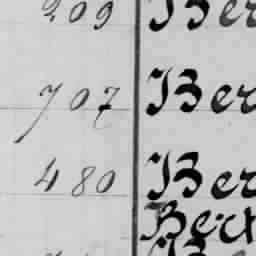 209 Ber
707 Ber
480 Ber
Bert